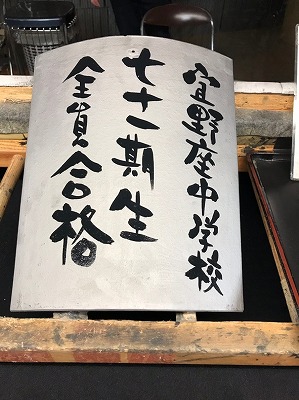 宜野座中学校
七十一期生
全員合格